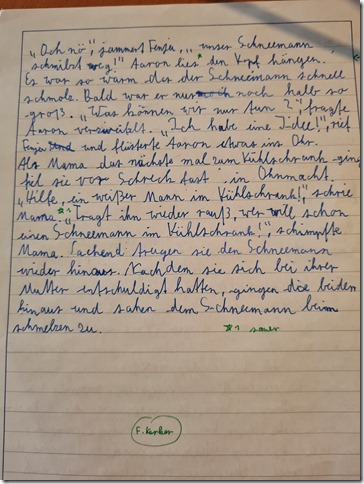 "Och nö", jammert Fenja, "unser Schneemann
schmilzt weg!" Aaron lies den Kopf hängen.
Es war so warm das der Schneemann schnell
schmolz. Bald war er nur noch halb so
groß. "Was können wir nur tun?", fragte
Aaron verzweifelt. "Ich habe eine Idee!", rief
Fenja und flüsterte Aaron etwas ins Ohr.
Als Mama das nächste mal zum Kühlschrank ging
fiel sie vor Schreck fast in Ohnmacht.
"Hilfe, ein weißer Mann im Kühlschrank!", schrie
Mama. *1 "Tragt ihn wieder rauß, wer will schon
einen Schneemann im Kühlschrank!", schimpfte
Mama. Lachend trugen sie den Schneemann
wieder hinaus. Nachdem sie sich bei ihrer
Mutter entschuldigt hatten, gingen die beiden
hinaus und sahen dem Schneemann beim
schmelzen zu.
*1 sauer